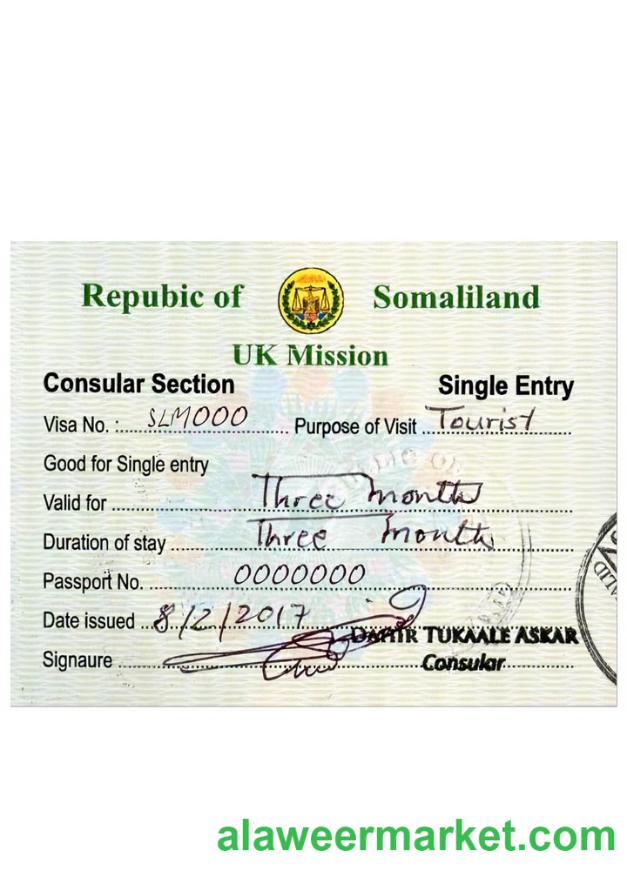 Repubic of Somaliland
UK Mission
Consular Section Single Entry
Visa No. : SLM000 Purpose of Visit Tourist
Good for Single entry
Valid for Three months
Duration of stay Three months
Passport No. 0000000
Date issued 8/2/2017
DAHIR TUKAALE ASKAR
Signaure Consular
VALID
alaweermarket.com